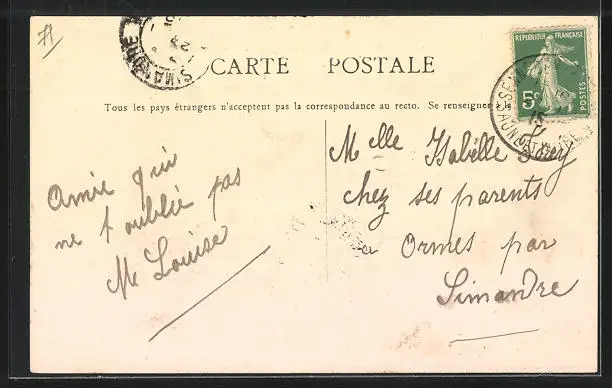 SIMANDRE
CARTE POSTALE
Tous les pays étrangers n'acceptent pas la correspondance au recto. Se renseigner
REPUBLIQUE FRANÇAISE
5c
POSTES
Amie qui
ne t oublie pas
M Louise
Melle Isabelle
chez ses parents
a Ormes par
Simandre